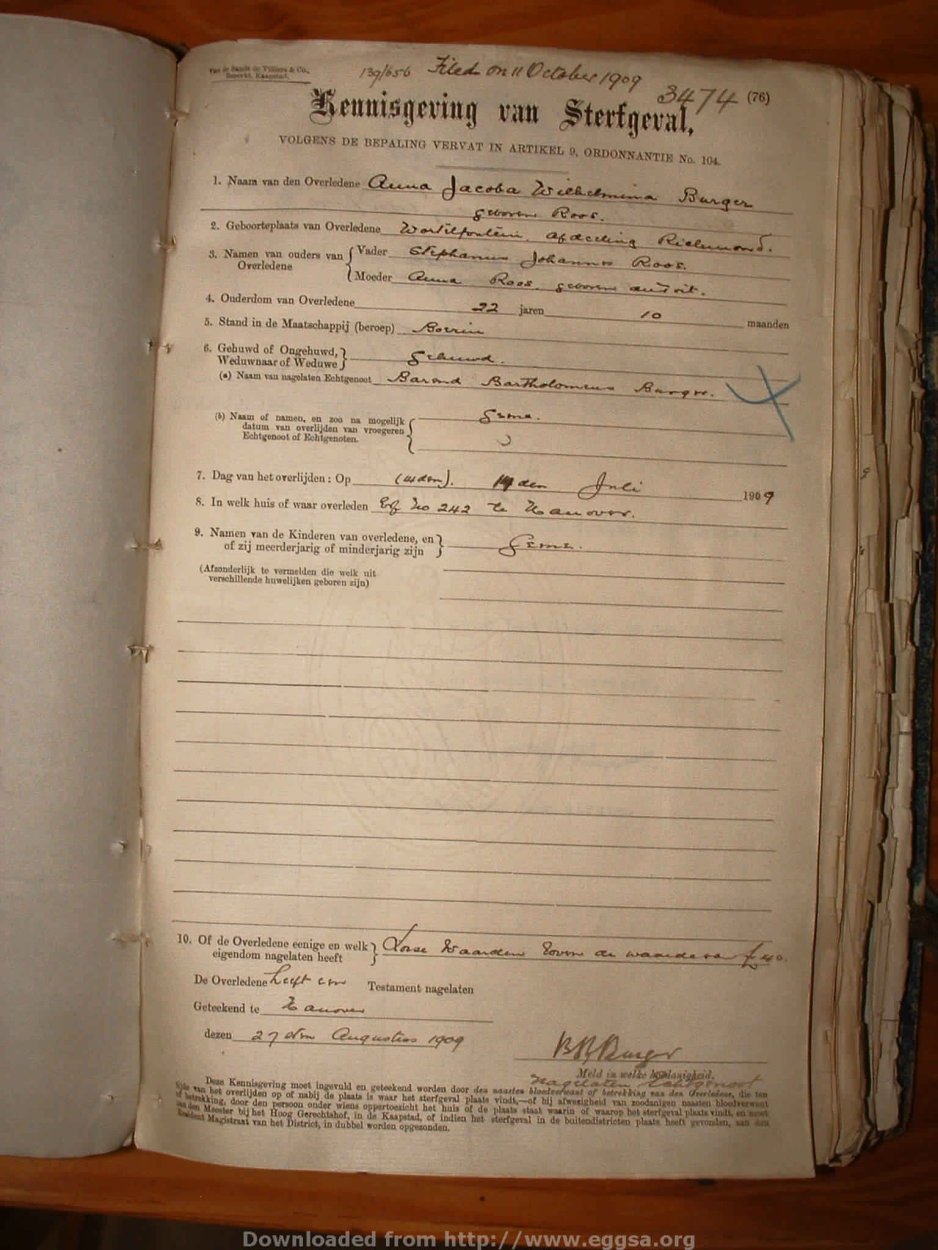 Van de Sandt de Villiers & Co.,
Beperkt, Kaapstad.
139/656 Filed on 11 October 1909
3474 (76)
Kennisgeving van Sterfgeval,
VOLGENS DE BEPALING VERVAT IN ARTIKEL 9, ORDONNANTIE No. 104.
1. Naam van den Overledene Anna Jacoba Wilhelmina Burger
geboren Roos.
2. Geboorteplaats van Overledene Wortelfontein, Afdeeling Richmond.
3. Namen van ouders van Overledene
Vader Stephanus Johannes Roos.
Moeder Anna Roos, geboren
4. Ouderdom van Overledene 22 jaren 10 maanden
5. Stand in de Maatschappij (beroep) Boerin
6. Gehuwd of Ongehuwd, Weduwnaar of Weduwe Gehuwd.
(a) Naam van nagelaten Echtgenoot Barend Bartholomeus Burger.
(b) Naam of namen, en zoo na mogelijk
datum van overlijden van vroegeren
Echtgenoot of Echtgenoten. Geene.
7. Dag van het overlijden: Op den Juli 1909
8. In welk huis of waar overleden Erf No 242 te Hanover.
9. Namen van de Kinderen van overledene, en
of zij meerderjarig of minderjarig zijn Geene.
(Afzonderlijk te vermelden die welk uit
verschillende huwelijken geboren zijn)
10. Of de Overledene eenige en welk
eigendom nagelaten heeft Losse Waarden boven de waarde van £40.
De Overledene heeft een Testament nagelaten
Geteekend te Hanover
dezen 27 sten Augustus 1909
BBBurger
Meld in welke hoedanigheid.
Nagelaten Echtgenoot
Deze Kennisgeving moet ingevuld en geteekend worden door den naasten bloedverwant of betrekking van den Overledene, die ten
tijde van het overlijden op of nabij de plaats is waar het sterfgeval plaats vindt,—of bij afwezigheid van zoodanigen naasten bloedverwant
of betrekking, door den persoon onder wiens oppertoezicht het huis of de plaats staat waarin of waarop het sterfgeval plaats vindt, en moet
aan den Meester bij het Hoog Gerechtshof, in de Kaapstad, of indien het sterfgeval in de buitendistricten plaats heeft gevonden, aan den
Resident Magistraat van het District, in dubbel worden opgezonden.
Downloaded from http://www.eggsa.org